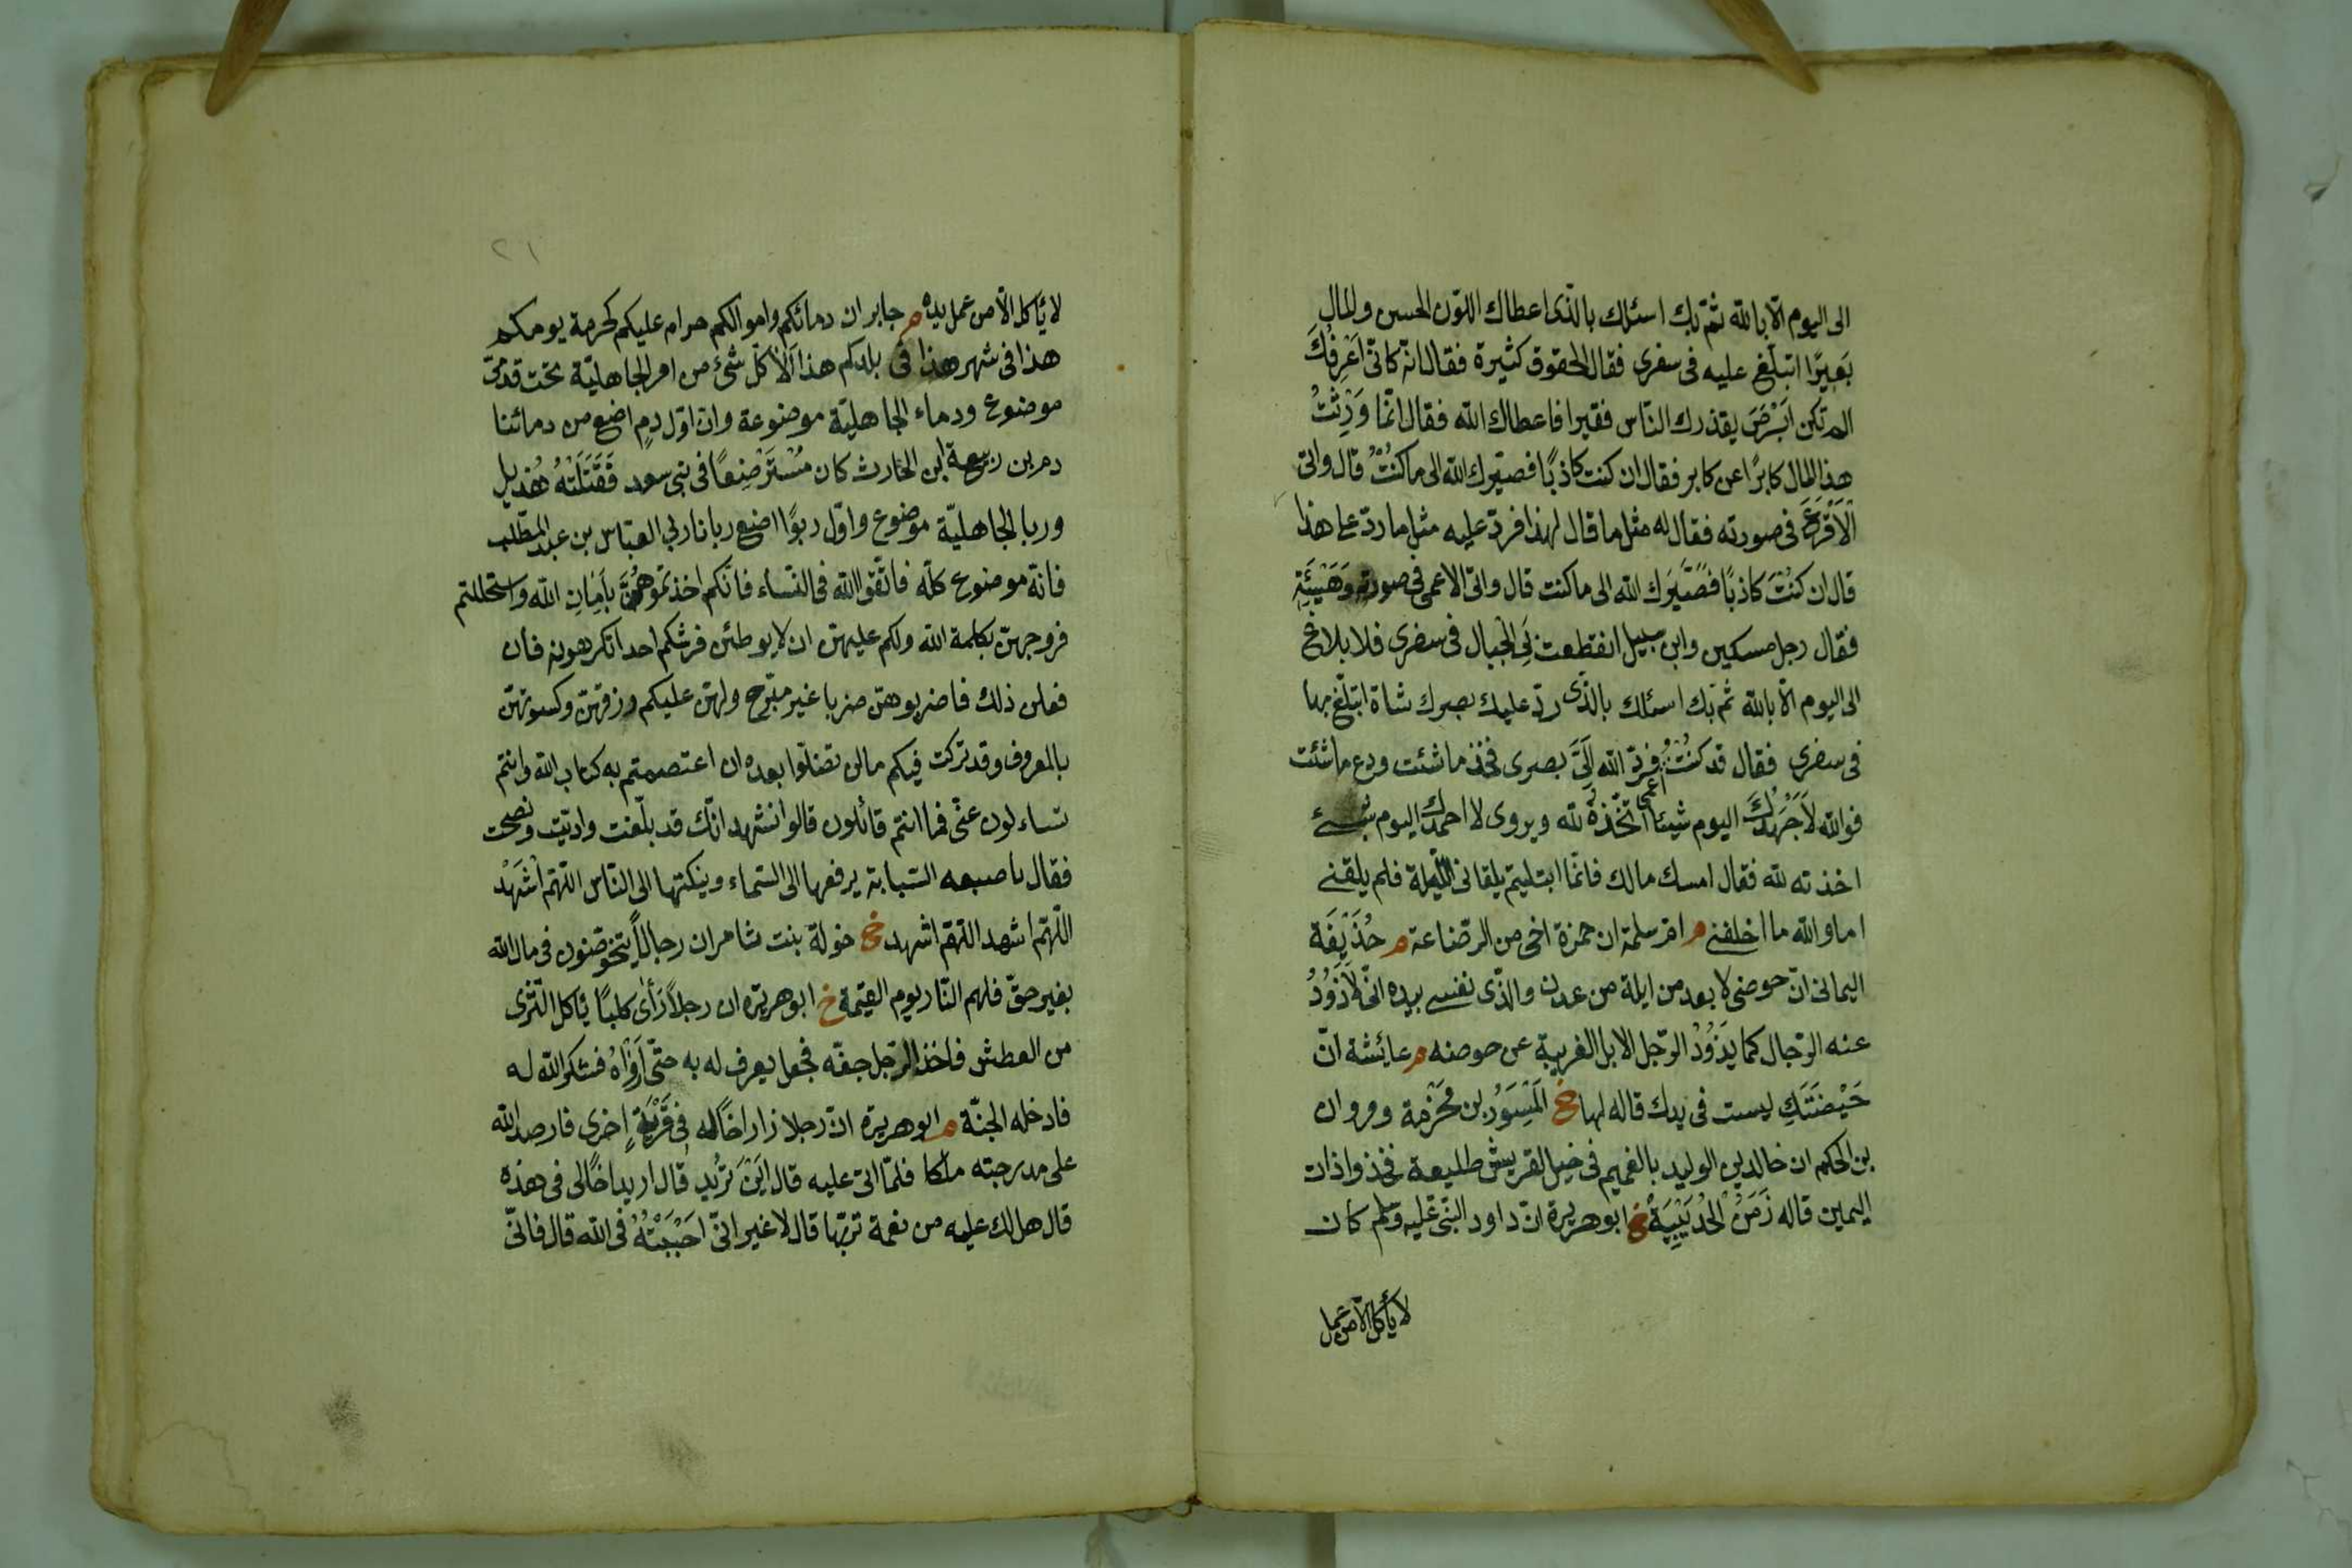 الى اليوم الّا بالله ثمّ بك اسئلك بالّذى اعطاك اللّون الحسن والمال
بَعيرًا اتبلّغ عليه فى سفرى فقال الحقوق كثيرة فقال انّه كانّى اَعْرِفُكَ
الم تكن اَبْرَصَ يقذرك النّاس فقيرا فاعطاك الله فقال انّما وَرِثْتُ
هذا المال كابرًا عن كابر فقال ان كنت كاذبًا فصيّرك الله الى ما كنتُ قال واتى
الْاَقْرَعَ فى صورته فقال له مثل ما قال لهذا فردّ عليه مثل ما ردّ على هذا
قال ان كنتَ كاذبًا فصَيَّرَك الله الى ما كنت قال واتى الاعمى فى صورته وَهَيْئَتِهِ
فقال رجل مسكين وابن سبيل انقطعت بِىَ الْجبال فى سفرى فلا بلاغ
الى اليوم الّا بالله ثمّ بك اسئلك بالّذى ردّ عليك بصرك شاة اتبلّغ بها
فى سفرى فقال قد كنْتُ اعمى فردّ الله اِلَىَّ بصرى فخذ ما شئت ودع ما شئت
فوالله لاَ اَجْهَدُكَ اليوم شيئا اتّخذْهُ لله ويروى لا احمدك اليوم بشئ
اخذته لله فقال امسك مالك فانّما ابتليتم يلقانى اللّيلة فلم يلقنى
اما والله ما اخلفنى م امّ سلمة ان حمزة اخى من الرّضاعة م حُذَيْفَة
اليمانى انّ حوضى لا بعد من ايلة من عدن والّذى نفسى بيده انّى لَاَذُوُدُ
عنه الرّجال كما يَذُوُدُ الرّجل الابل الغريبة عن حوضه م عايشة انّ
حَيْضَتَكِ ليست فى يدك قاله لها خ الْمِسْوَرُ بن مَخْرَمة ومروان
بن الحكم ان خالد بن الوليد بالغميم فى خيل لقريش طليعة فخذوا ذات
اليمين قاله زَمَنَ الْحُدَيْبِيَةِ خ ابو هريرة انّ داود النّبى عليه وسلم كان
لا يأكل الّا من عمل
٢١
لا يأكل الّا من عمل يده م جابر ان دمائكم واموالكم حرام عليكم كحرمة يومكم
هذا فى شهر هذا فى بلدكم هذا اَلَا كلّ شئ من امر الجاهليّة تحت قدمىّ
موضوع ودماء الجاهليّة موضوعة وان اوّل دمٍ اضع من دمائنا
دم بن ربيعة ابن الحارث كان مُسْتَرْضِعًا فى بنى سعد فَقَتَلَتْهُ هُذيل
وربا الجاهليّة موضوع واوّل ربوًا اضع ربانا ربى العبّاس بن عبد المطّلب
فانّه موضوع كلّه فاتّقوا الله فى النّساء فانّكم اخذتموهُنَّ بِاَمَانِ الله واستحللتم
فروجهنّ بكلمة الله ولكم عليهنّ ان لا يوطئن فرشكم احدا تكرهونه فان
فعلن ذلك فاضربوهنّ ضربا غير مبّرح ولهنّ عليكم ورزقهنّ وكسوتهنّ
بالمعروف وقد تركت فيكم مالن تضلّوا بعده ان اعتصمتم به كتاب الله وانتم
تساءلون عنّى فما انتم قائلون قالوا نشهد انّك قد بلّغت وادّيت ونصحت
فقال باصبعه السّبابة يرفعها الى السّماء وينكتها الى النّاس اللّهمّ اشْهَدْ
اللّهمّ اشهد اللّهمّ اشهد خ خولة بنت ثامر ان رجالاً يتخوّضون فى مال الله
بغير حقّ فلهم النّار يوم القيمة خ ابو هريرة ان رجلاً رَأى كلبًا ياكل الثّرى
من العطش فاخذ الرّجل خفّه فجعل يعرف له به حتّى اَرْوَاهُ فشكر الله له
فادخله الجنّة م ابو هريرة انّ رجلا زار اخًا له فى قَرْيَةٍ اخرى فارصد الله
على مدرجته ملكا فلمّا اتى عليه قال اَيْنَ تُريد قال اريد اخًا لى فى هذه
قال هل لك عليه من نعمة تربّها قال لا غير انّى احْبَبْتُهُ فى الله قال فانّى